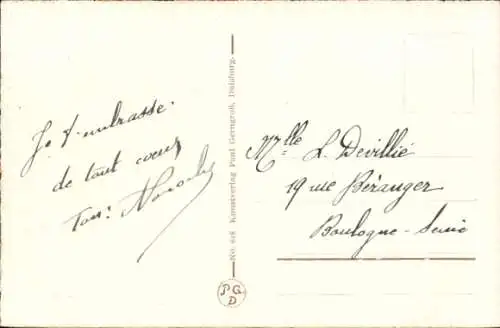 Je t'embrasse.
de tout cœur
Ton:
No. 648 Kunstverlag Paul Gerngroß, Duisburg.
PG
D
Mlle L. Devillié
19 rue Béranger
Boulogne-Seine